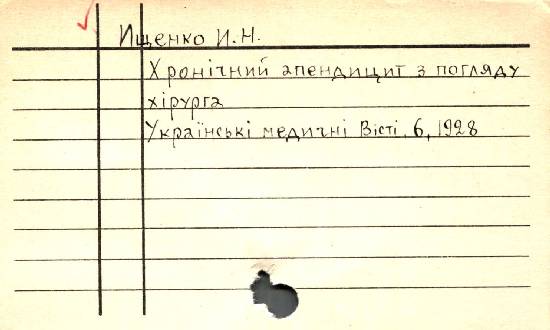 Ищенко И.Н.
Хронічний апендицит з погляду
хірурга
Українські медичні Вісті, 6, 1928